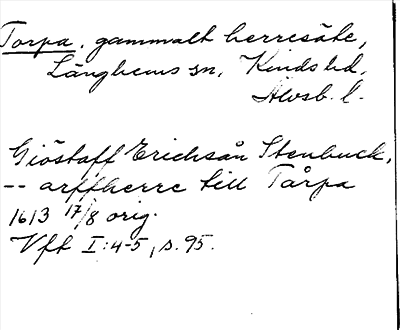 Torpa, gammalt herresäte,
Länghems sn, Kinds hd,
Älvsb. l.
Giöstaff Erichsån Stenbuck,
-- arffherre till Tårpa
1613 17/8 orig.
Vft I:4-5, s. 95.